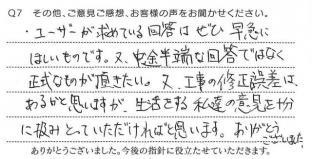 Q7　その他、ご意見ご感想、お客様の声をお聞かせください。
・ユーザーが求めている回答は ぜひ 早急に
ほしいものです。又、中途半端な回答ではなく
正式なものが頂きたい。又、工事の修正誤差は
あるかと思いますが、生活とする私達の意見を十分
に汲みとっていただければと思います。ありがとう
ございました
ありがとうございました。今後の指針に役立たせていただきます。